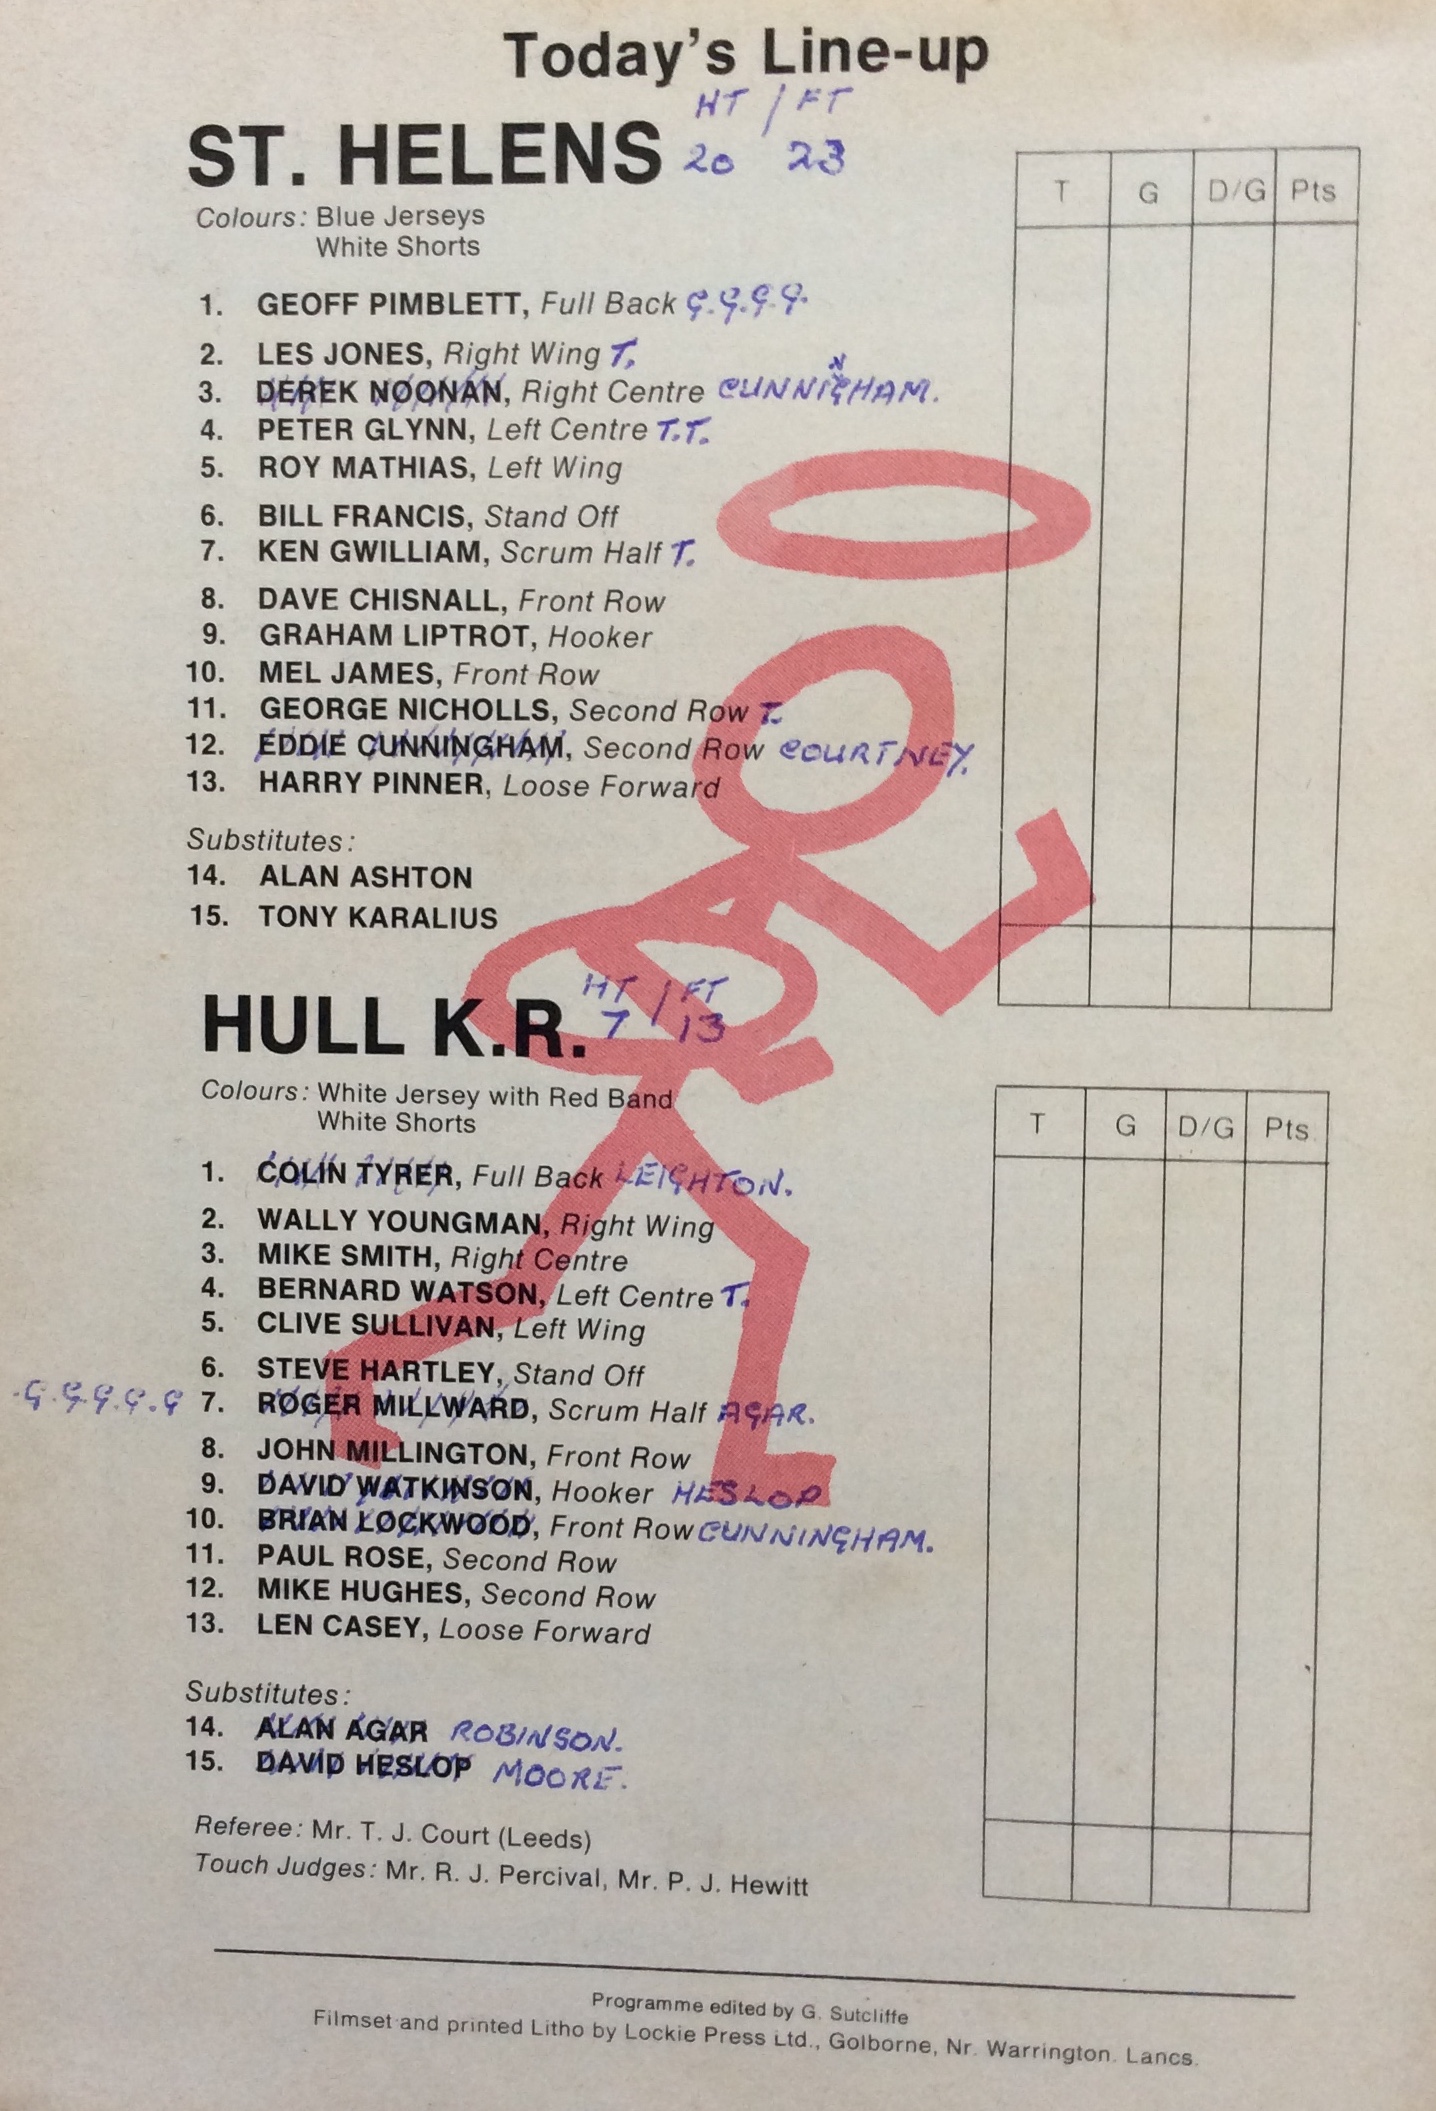 Today's Line-up
HT / FT
ST. HELENS 20 23
T G D/G Pts
Colours: Blue Jerseys
White Shorts
1. GEOFF PIMBLETT, Full Back G.G.G.G.
2. LES JONES, Right Wing T.
3. DEREK NOONAN, Right Centre CUNNINGHAM.
4. PETER GLYNN, Left Centre T.T.
5. ROY MATHIAS, Left Wing
6. BILL FRANCIS, Stand Off
7. KEN GWILLIAM, Scrum Half T.
8. DAVE CHISNALL, Front Row
9. GRAHAM LIPTROT, Hooker
10. MEL JAMES, Front Row
11. GEORGE NICHOLLS, Second Row T.
12. EDDIE CUNNINGHAM, Second Row COURTNEY.
13. HARRY PINNER, Loose Forward
Substitutes:
14. ALAN ASHTON
15. TONY KARALIUS
HT / FT
HULL K.R. 7 13
Colours: White Jersey with Red Band
White Shorts
T G D/G Pts.
1. COLIN TYRER, Full Back LEIGHTON.
2. WALLY YOUNGMAN, Right Wing
3. MIKE SMITH, Right Centre
4. BERNARD WATSON, Left Centre T.
5. CLIVE SULLIVAN, Left Wing
6. STEVE HARTLEY, Stand Off
G.G.G.G.G 7. ROGER MILLWARD, Scrum Half AGAR.
8. JOHN MILLINGTON, Front Row
9. DAVID WATKINSON, Hooker HESLOP
10. BRIAN LOCKWOOD, Front Row CUNNINGHAM.
11. PAUL ROSE, Second Row
12. MIKE HUGHES, Second Row
13. LEN CASEY, Loose Forward
Substitutes:
14. ALAN AGAR ROBINSON.
15. DAVID HESLOP MOORE.
Referee: Mr. T. J. Court (Leeds)
Touch Judges: Mr. R. J. Percival, Mr. P. J. Hewitt
Programme edited by G. Sutcliffe
Filmset and printed Litho by Lockie Press Ltd., Golborne, Nr. Warrington. Lancs.